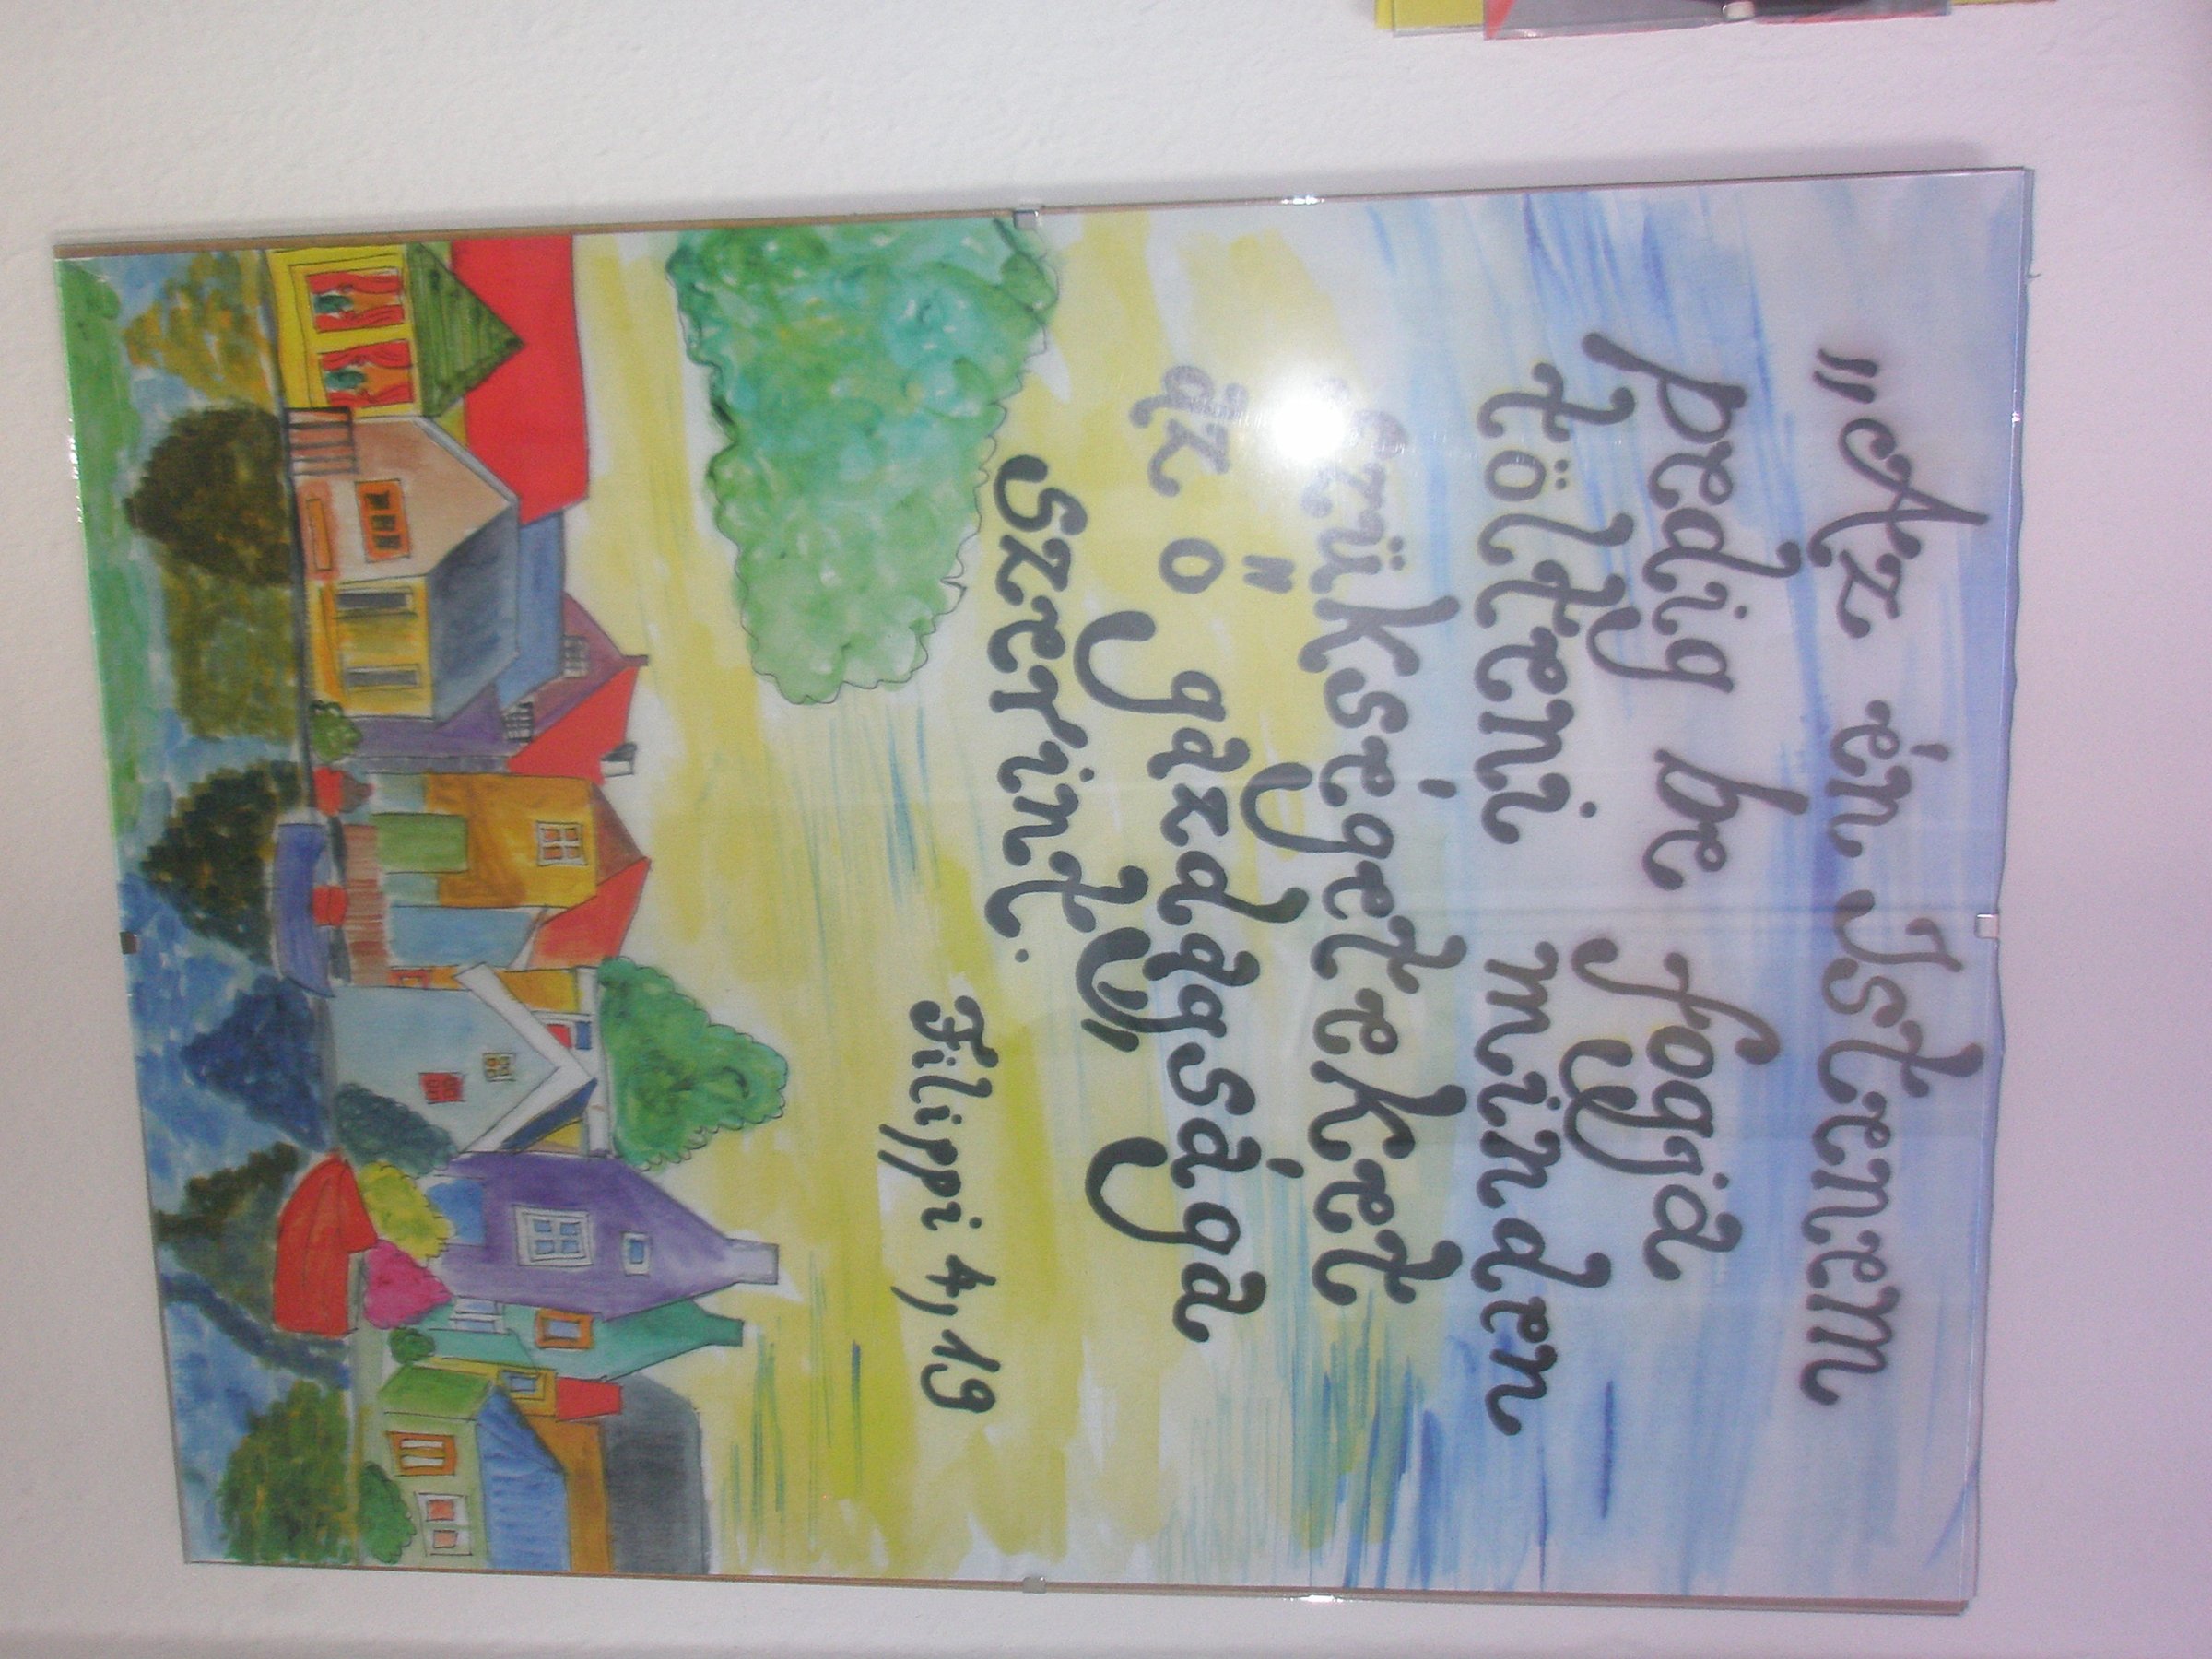 „Az én Istenem
pedig be fogja
tölteni minden
szükségeteket
az ő gazdagsága
szerint."
Filippi 4,19